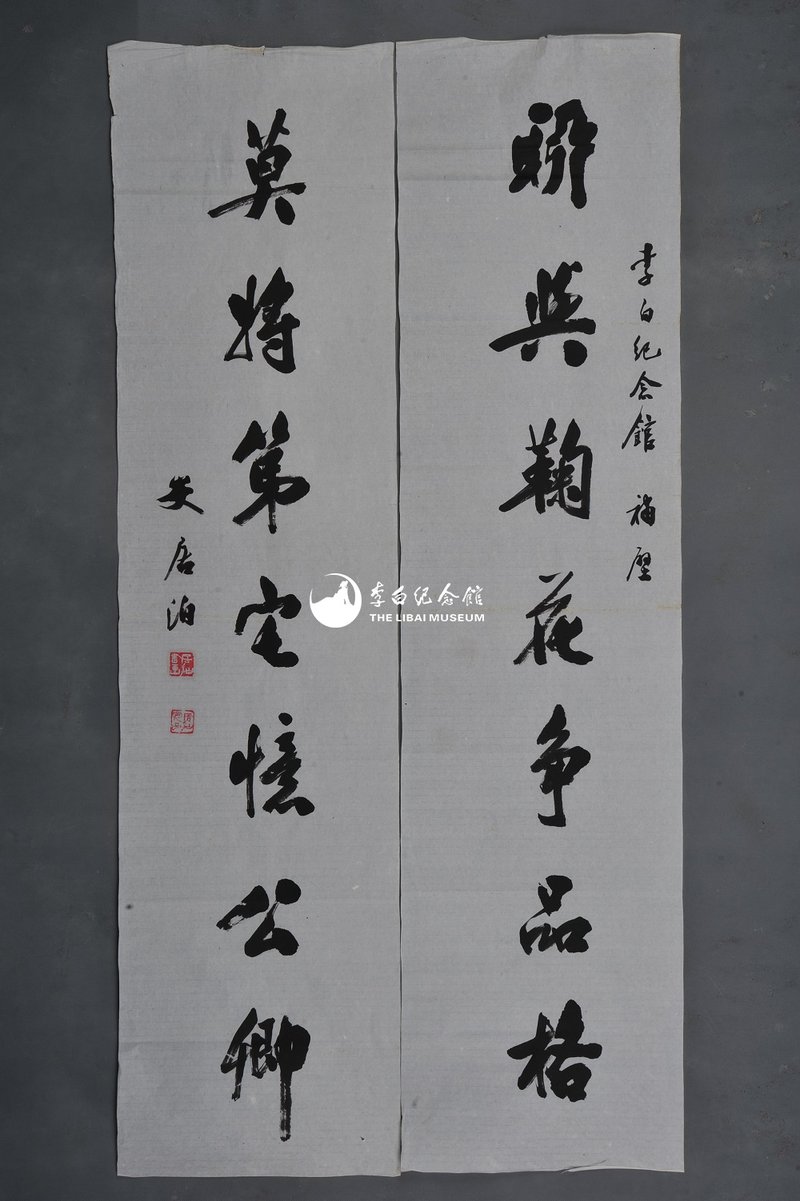 李白纪念館 補壁
聊與鞠花争品格
莫将第宅憶公卿
居泊
李白纪念館
THE LIBAI MUSEUM